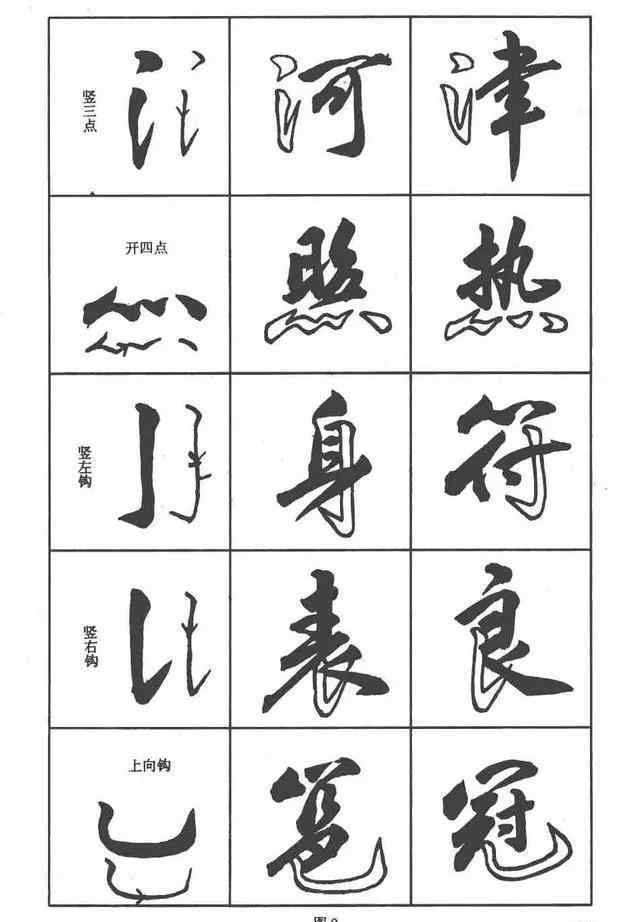 竖三点
河 津
开四点
照 热
竖左钩
身 符
竖右钩
表 良
上向钩
冠
图